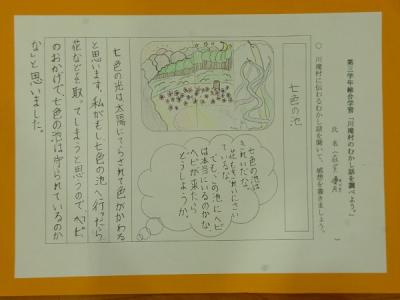 第三学年総合学習「川滝村のむかし話を調べよう。」
氏名
○ 川滝村に伝わるむかし話を聞いて、感想を書きましょう。
七色の池
七色の池は
きれいだな。
花もきれいにさい
ているな。
でも、この池にヘビ
は本当にいるのかな。
ヘビが来たら
どうしようか。
七色の光は太陽にてらされて色がかわる
と思います。私がもし七色の池へ行ったら
花などを取ってしまうと思うので、ヘビ
のおかげで、七色の池は守られているのか
な」と思いました。